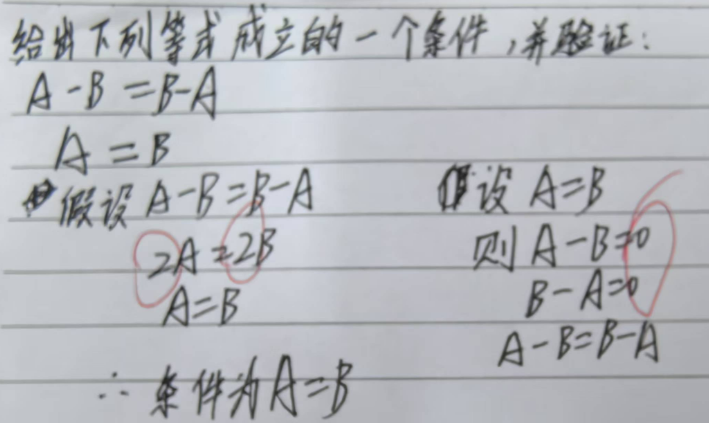 给出下列等式成立的一个条件,并验证:
A-B=B-A
A=B
假设 A-B=B-A
2A=2B
A=B
假设 A=B
则 A-B=0
B-A=0
A-B=B-A
∴ 条件为A=B